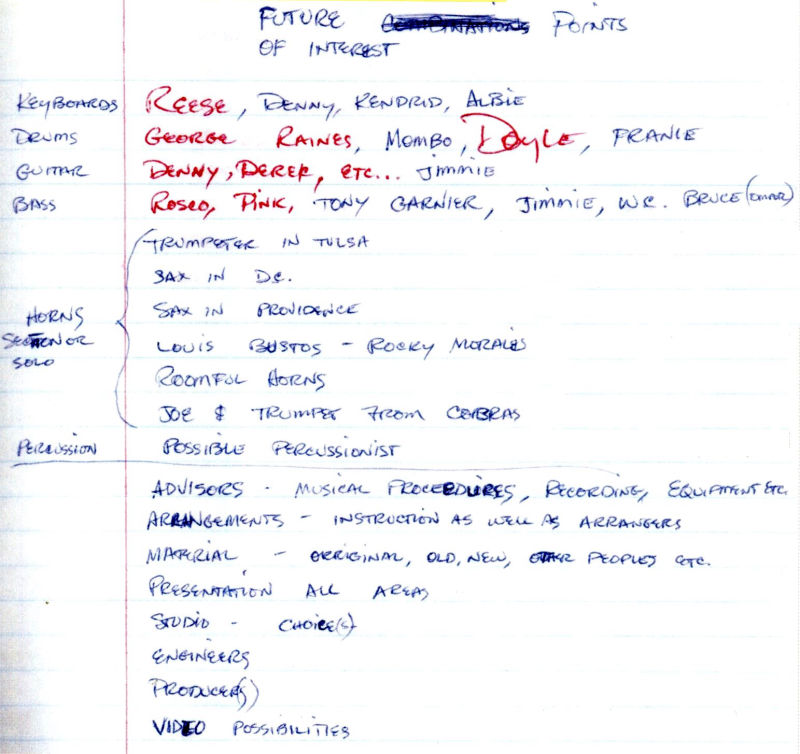 FUTURE COMBINATIONS POINTS
OF INTEREST
KEYBOARDS REESE, DENNY, KENDRID, ALBIE
DRUMS GEORGE RAINES, MOMBO, DOYLE, FRANIE
GUITAR DENNY, DEREK, ETC... JIMMIE
BASS ROSCO, PINK, TONY GARNIER, JIMMIE, W.C. BRUCE (OMAR)
TRUMPETER IN TULSA
SAX IN D.C.
SAX IN PROVIDENCE
HORNS
SECTION OR
SOLO
LOUIS BUSTOS - ROCKY MORALES
ROOMFUL HORNS
JOE & TRUMPET FROM COBRAS
PERCUSSION POSSIBLE PERCUSSIONIST
ADVISORS - MUSICAL PROCEDURES, RECORDING, EQUIPMENT ETC.
ARRANGEMENTS - INSTRUCTION AS WELL AS ARRANGERS
MATERIAL - ORRIGINAL, OLD, NEW, OTHER PEOPLES ETC.
PRESENTATION ALL AREAS
STUDIO - CHOICE(S)
ENGINEERS
PRODUCER(S)
VIDEO POSSIBILITIES